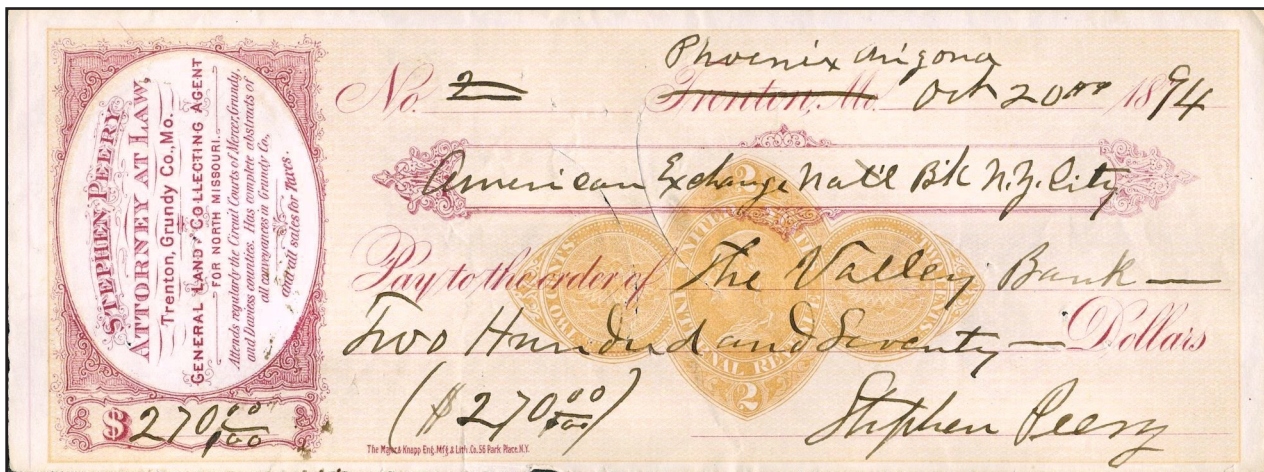 STEPHEN PEERY,
ATTORNEY AT LAW,
Trenton, Grundy Co., Mo.
GENERAL LAND & COLLECTING AGENT
FOR NORTH MISSOURI.
Attends regularly the Circuit Courts of Mercer, Grundy,
and Daviess counties. Has complete abstracts of
all conveyances in Grundy Co.,
and all sales for Taxes.
$ 270 00/100
Phoenix Arizona
No. 2 Trenton, Mo. Oct 20 1894
American Exchange Nat'l Bk N.Y. City
Pay to the order of The Valley Bank —
Two Hundred and Seventy — Dollars
UNITED STATES
INTERNAL REVENUE
2
2
($270 00/100)
Stephen Peery
The Major & Knapp Eng. Mfg & Lith. Co. 56 Park Place N.Y.